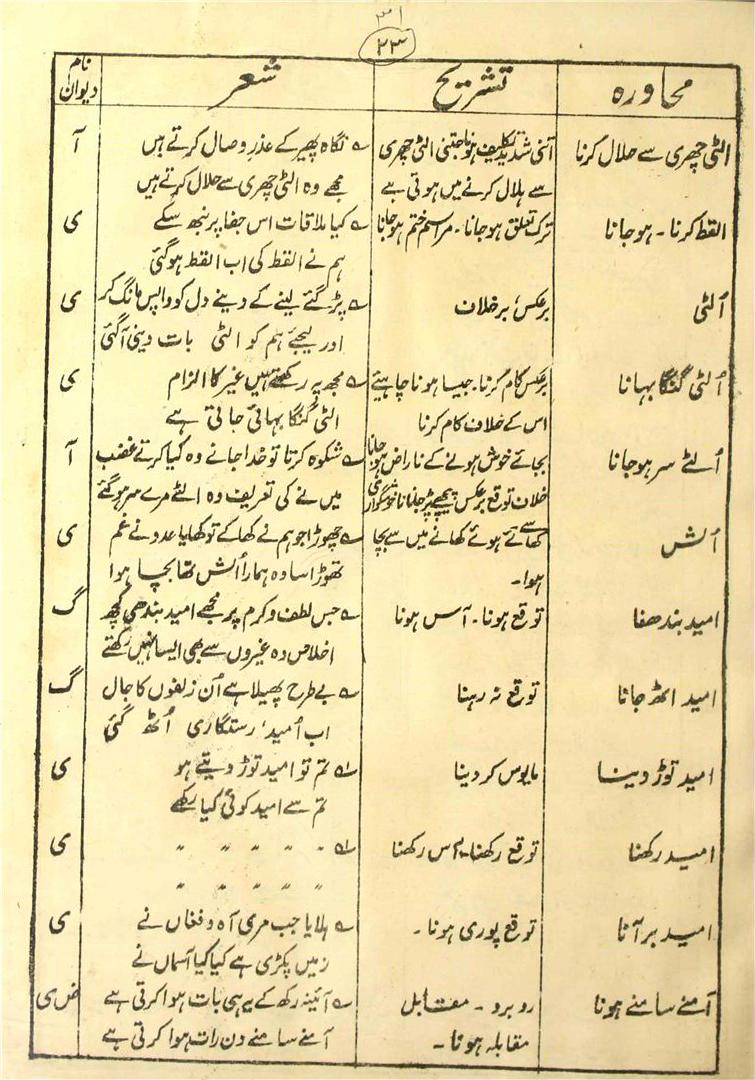 ۳۱
۲۳
محاورہ تشریح شعر نام دیوان
الٹی چھری سے حلال کرنا اتنی شدید تکلیف ہونا جتنی الٹی چھری ؎ نگاہ پھیر کے عذر وصال کرتے ہیں آ
سے ہلال کرنے میں ہوتی ہے مجھے وہ الٹی چھری سے حلال کرتے ہیں
القط کرنا ۔ ہو جانا ترک تعلق ہو جانا ۔ مراسم ختم ہو جانا ؎ کیا ملاقات اس جفا پر نبھ سکے ی
ہم نے القط کی اب القط ہو گئی
اُلٹی برعکس، برخلاف ؎ پڑ گئے لینے کے دینے دل کو واپس مانگ کر ی
اور لیجئے ہم کو الٹی بات دینی آ گئی
اُلٹی گنگا بہانا برعکس کام کرنا ۔ جیسا ہونا چاہیئے ؎ مجھ پہ رکھتے ہیں غیر کا الزام ی
اس کے خلاف کام کرنا الٹی گنگا بہائی جاتی ہے
اُلٹے سر ہو جانا بجائے خوش ہونے کے ناراض ہو جانا ؎ شکوہ کرتا تو خدا جانے وہ کیا کرتے غضب آ
خلاف توقع برعکس پیچھے پڑ جانا میں نے کی تعریف وہ الٹے مرے سر ہو گئے
اُلش کھاتے ہوئے کھانے میں سے بچا ؎ چھوڑا جو ہم نے کھا کے تو کھایا عدو نے غم ی
ہوا ۔ تھوڑا سا وہ ہمارا اُلش تھا بچا ہوا
امید بندھنا توقع ہونا ۔ آس ہونا ؎ جس لطف و کرم پر مجھے امید بندھی کچھ گ
اخلاص وہ غیروں سے بھی ایسا نہیں رکھتے
امید اٹھ جانا توقع نہ رہنا ؎ بے طرح پھیلا ہے اُن زلفوں کا جال گ
اب اُمید، رستگاری اُٹھ گئی
امید توڑ دینا مایوس کر دینا ؎ تم تو امید توڑ دیتے ہو ی
تم سے امید کوئی کیا رکھے
امید رکھنا توقع رکھنا ۔ آس رکھنا ؎ " " " " " ی
" " " " "
امید بر آنا توقع پوری ہونا ۔ ؎ ہلایا جب مری آہ و فغاں نے ی
زمیں پکڑی ہے کیا کیا آسماں نے
آمنے سامنے ہونا روبرو ۔ مقابل ؎ آئینہ رکھ کے یہی بات ہوا کرتی ہے ض ی
مقابلہ ہونا ۔ آمنے سامنے دن رات ہوا کرتی ہے